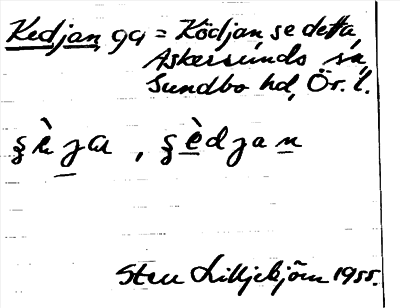 Kedjan, ga = Ködjan, se detta,
Askersunds sn,
Sundbo hd, Ör. l.
Sten Lilljebjörn 1955.